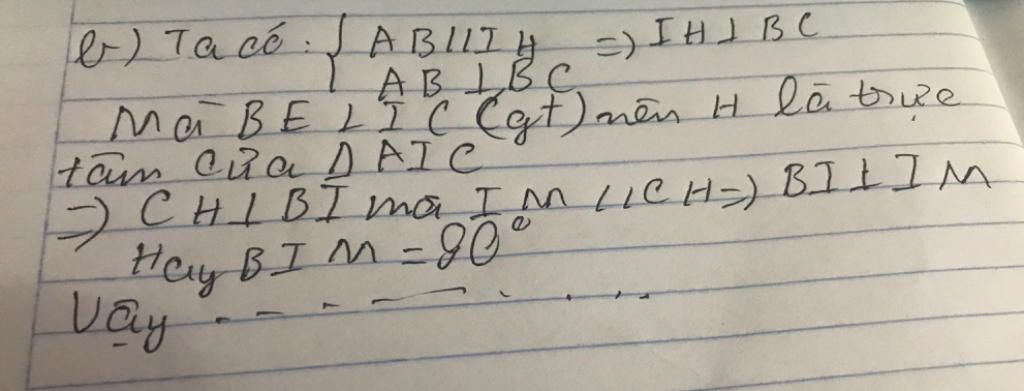 b) Ta có : { AB // IH => IH ⊥ BC
AB ⊥ BC
Mà BE ⊥ IC (gt) nên H là trực
tâm của Δ AIC
=> CH ⊥ BI mà IM // CH => BI ⊥ IM
Hay BIM = 90°
Vậy . - - — . . . .